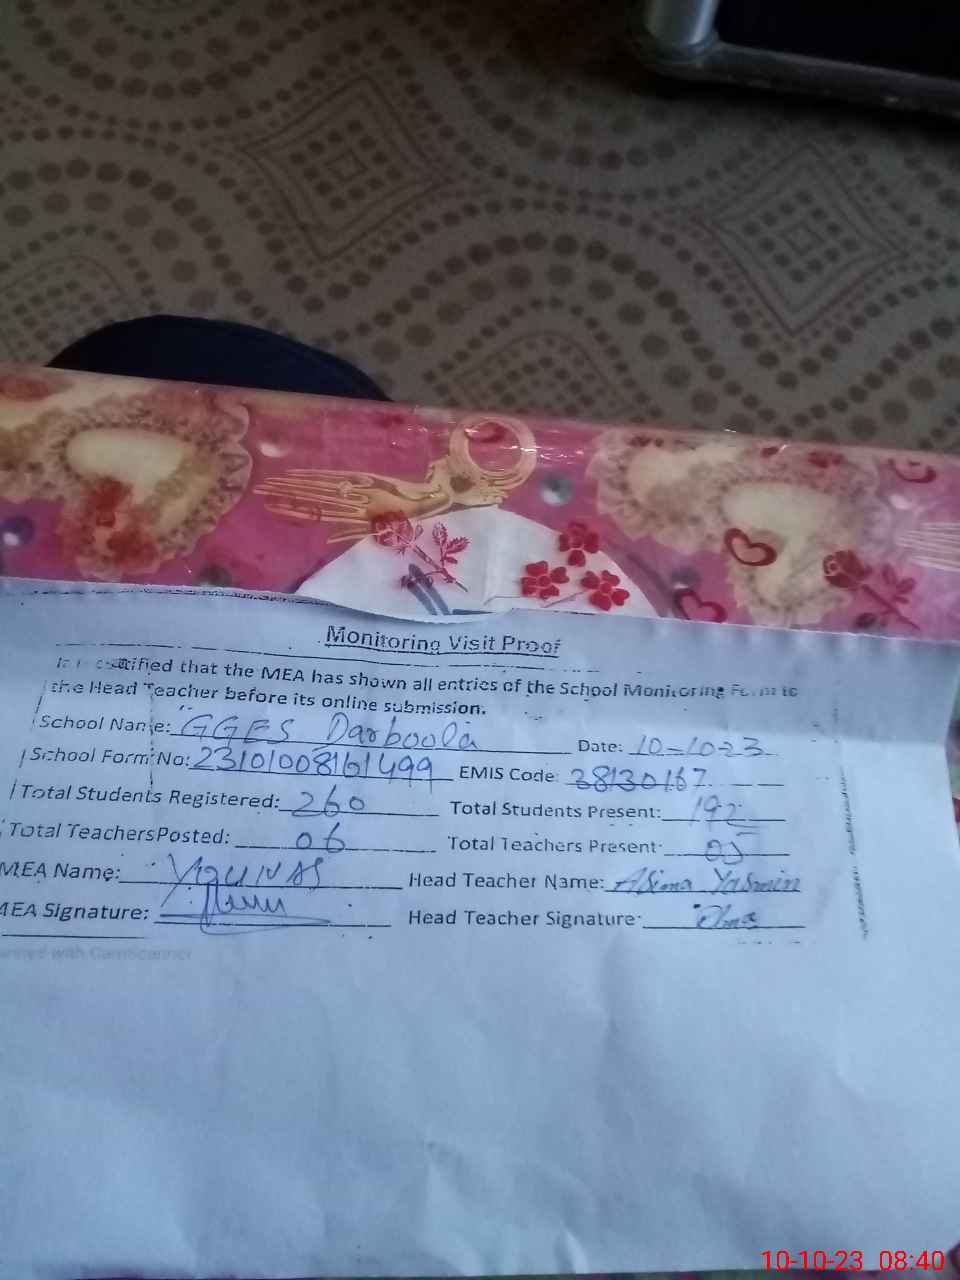 Monitoring Visit Proof
It is certified that the MEA has shown all entries of the School Monitoring Form to
the Head Teacher before its online submission.
School Name: GGES Darboola Date: 10-10-23
School Form No: 23101008161499 EMIS Code: 38130167
Total Students Registered: 260 Total Students Present: 192
Total Teachers Posted: 06 Total Teachers Present: 05
MEA Name: YOUNAS Head Teacher Name: Asima Yasmin
MEA Signature: Head Teacher Signature:
anned with CamScanner
10-10-23 08:40